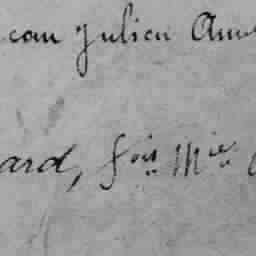 ean Julien Am
ard, fois Mie